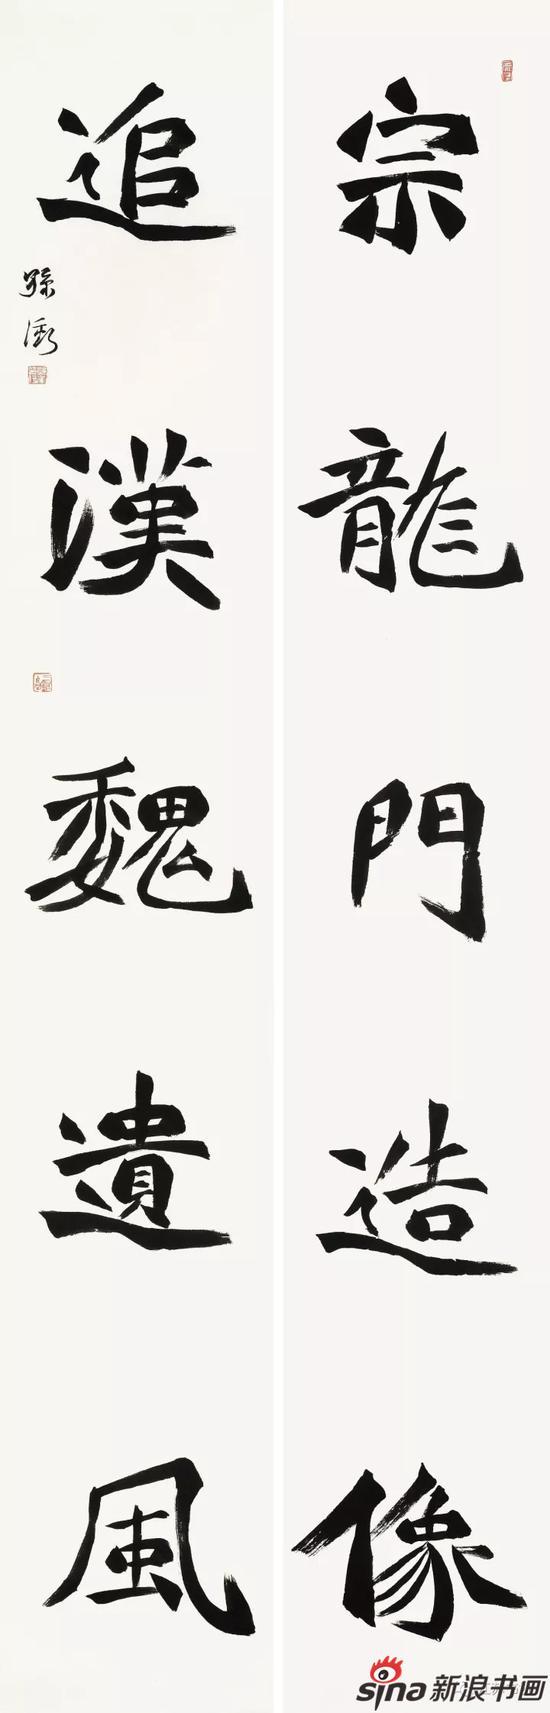 宗龍門造像
追漢魏遺風
sina 新浪书画